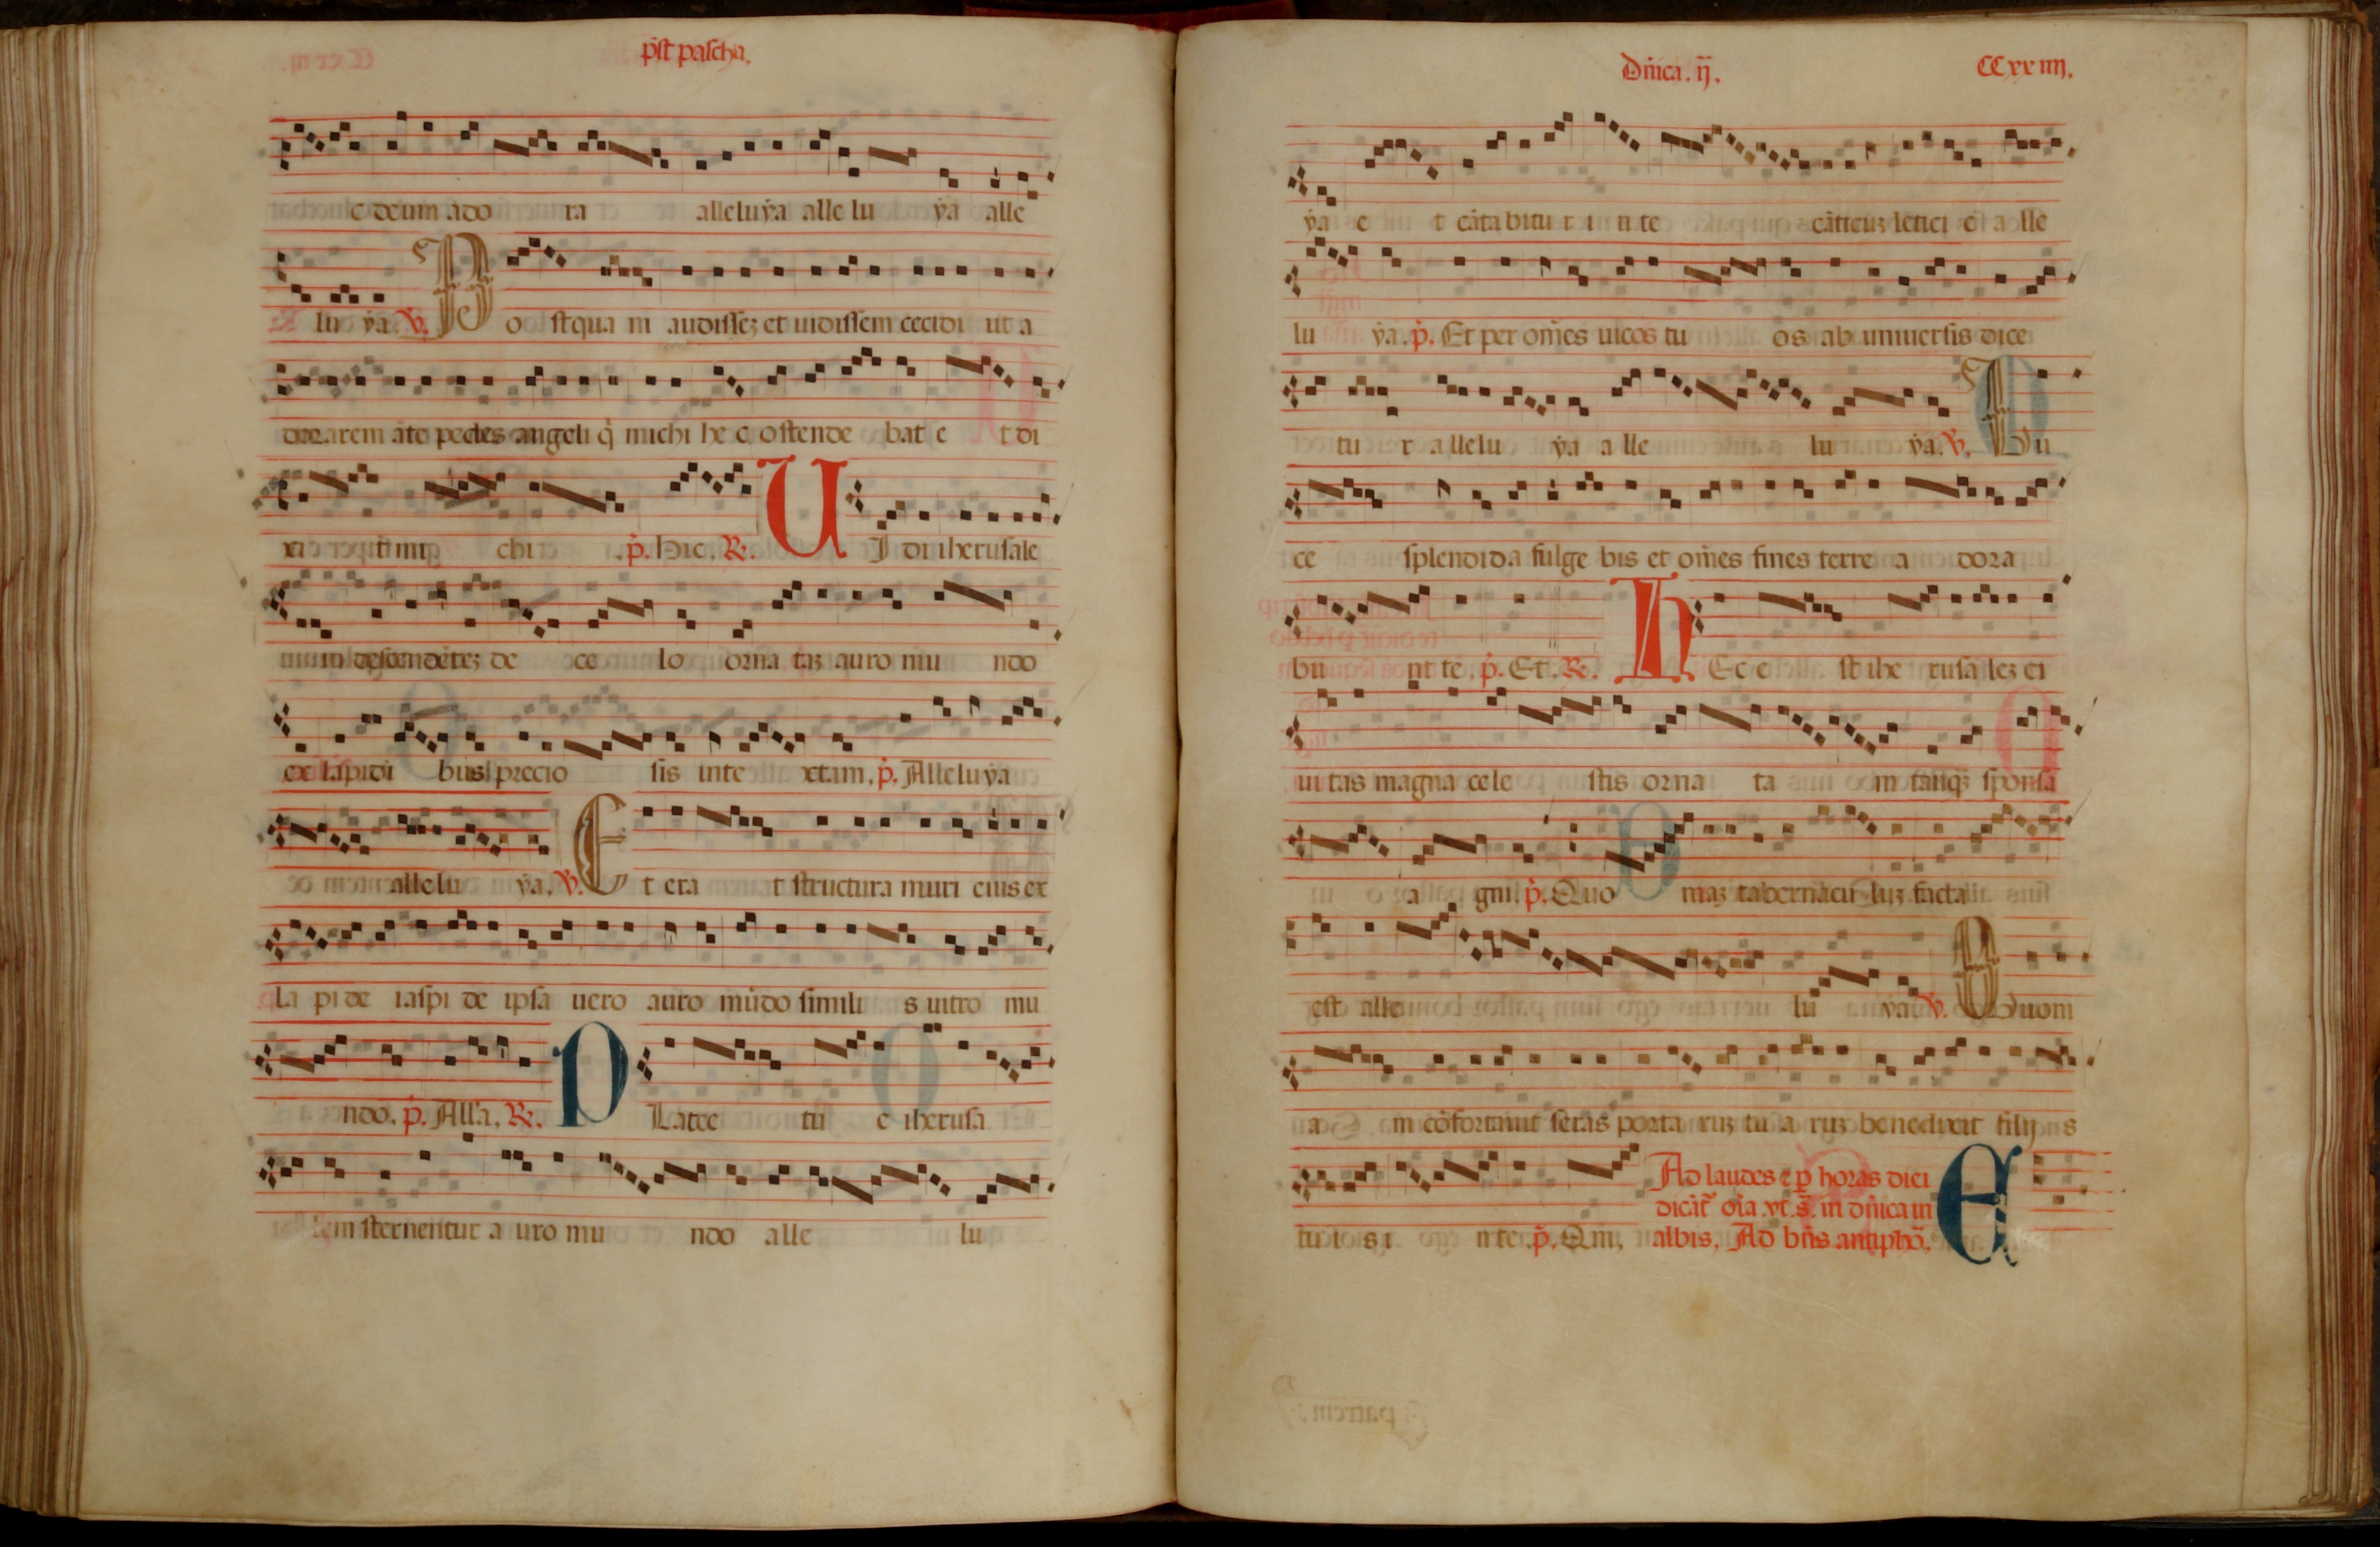 pꝰst pascha.
e deum ado ra alleluẏa alle lu ẏa alle
lu ẏa. ℣. P o stqua m audissez et uidissem cecidi ut a
dorarem āte pedes angeli q̇ michi he c ostende bat e t di
xi t mi chi .p̄. Hic. ℟. U I di iherusale
m descendētez de ce lo orna taz auro mu ndo
ex lapidi bus precio sis inte xtam. p̄. Alleluẏa
allelu ẏa. ℣. E t era t structura muri eius ex
la pide iaspi de ipsa uero auro mūdo simili s uitro mu
ndo. p̄. All'a. ℟. P Latee tu e iherusa
lem sternentur a uro mu ndo alle lu
Dn̄ica. ij. CCxxiiij.
ẏa e t cātabitu r i n te cāticuz letici e a lle
lu ẏa. p̄. Et per om̄es uicos tu os ab uniuersis dice
tu r allelu ẏa a lle lu ẏa. ℣. Lu
ce splendida fulge bis et om̄es fines terre a dora
bu nt te. p̄. Et. ℟. h Ec e st ihe rusa lez ci
ui tas magna cele stis orna ta m tanq̄ sponsa
a gni. p̄. Quo maz tabernacu luz facta
est alle lu ẏa ℣. Quoni
a m cōfortauit seras porta ruz tu a ruz benedixit filijs
tu i s i n te. p̄. Qm̄.
Ad laudes ⁊ p horas diei
dicāt̄ oīa vt. s̄. in dn̄ica in
albis. Ad bn̄s antiphō. E